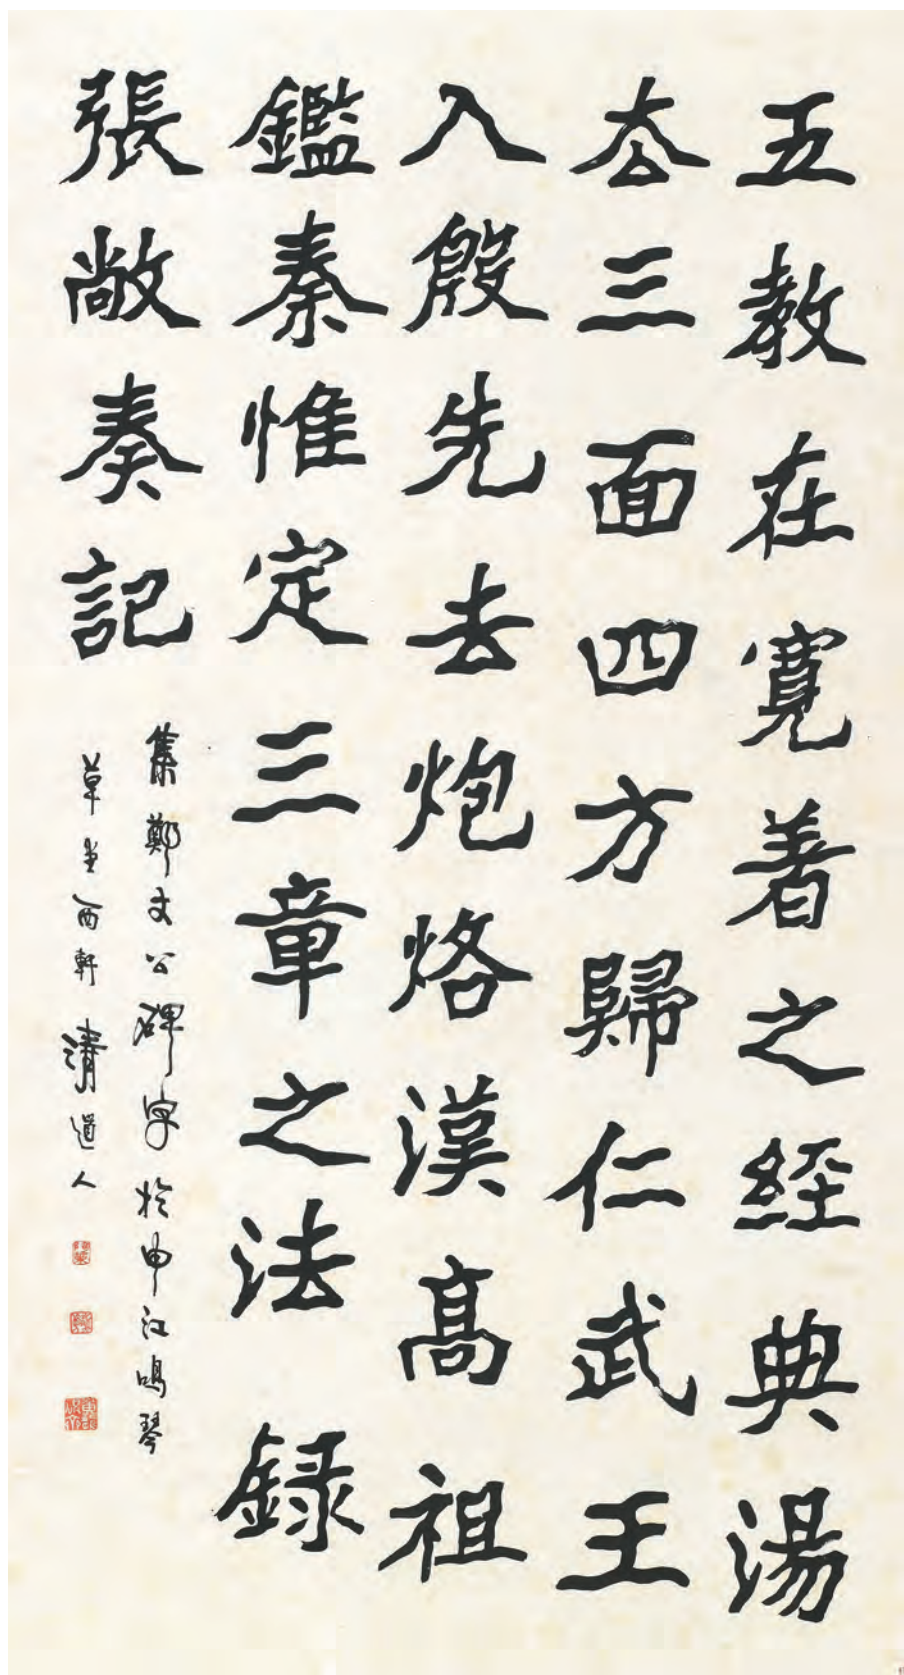 五教在寬著之經典湯
去三面四方歸仁武王
入殷先去炮烙漢高祖
鑑秦惟定三章之法錄
張敞奏記
集鄭文公碑字於申江鳴琴
草堂西軒清道人